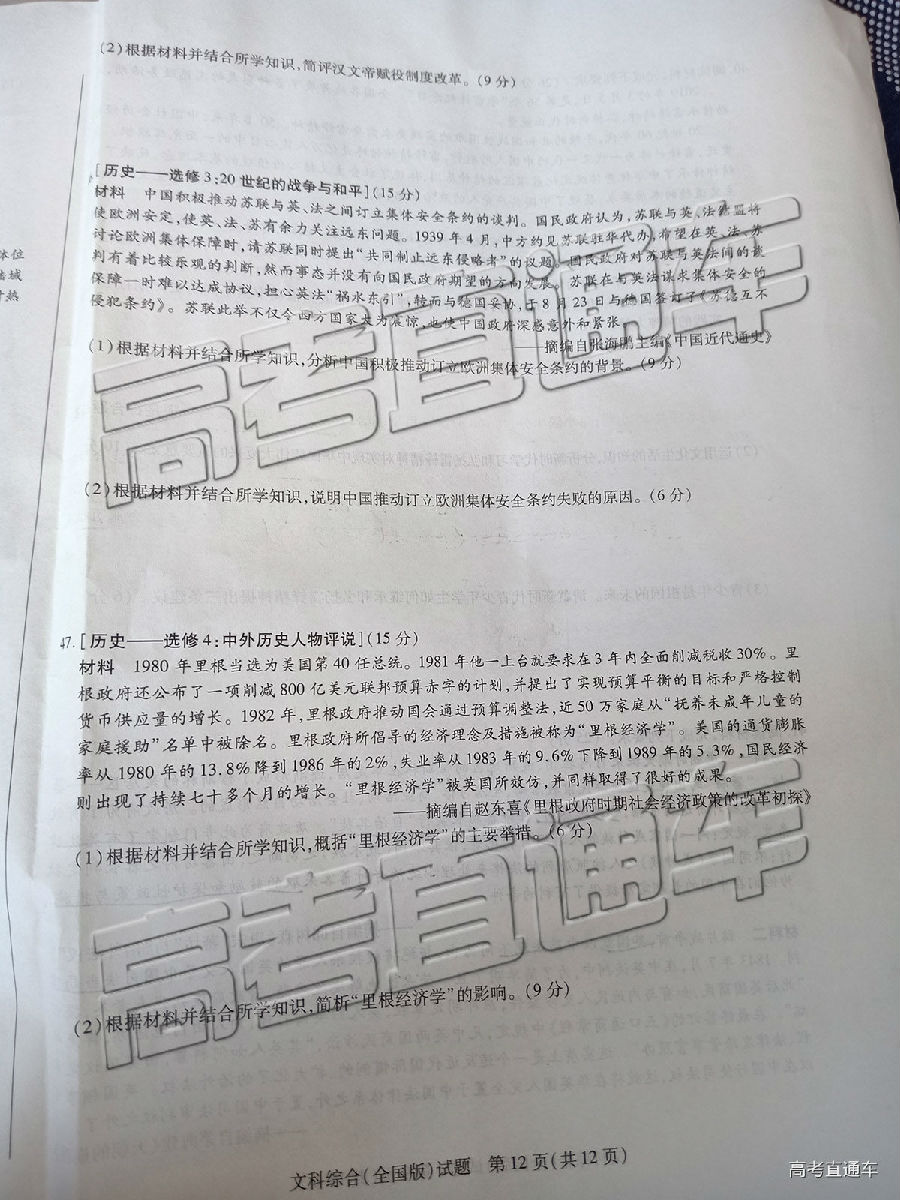 (2)根据材料并结合所学知识,简评汉文帝赋役制度改革。(9分)
[历史——选修3:20世纪的战争与和平](15分)
材料 中国积极推动苏联与英、法之间订立集体安全条约的谈判。国民政府认为,苏联与英、法结盟将
使欧洲安定,使英、法、苏有余力关注远东问题。1939年4月,中方约见苏联驻华代办,希望在英、法、苏
讨论欧洲集体保障时,请苏联同时提出“共同制止远东侵略者”的议题。国民政府对苏联与英法间的谈
判有着比较乐观的判断,然而事态并没有向国民政府期望的方向发展。苏联在与英法谋求集体安全的
保障一时难以达成协议,担心英法“祸水东引”,转而与德国妥协,于8月23日与德国签订了《苏德互不
侵犯条约》。苏联此举不仅令西方国家大为震惊,也使中国政府深感意外和紧张。
——摘编自张海鹏主编《中国近代通史》
(1)根据材料并结合所学知识,分析中国积极推动订立欧洲集体安全条约的背景。(9分)
(2)根据材料并结合所学知识,说明中国推动订立欧洲集体安全条约失败的原因。(6分)
47.[历史——选修4:中外历史人物评说](15分)
材料 1980年里根当选为美国第40任总统。1981年他一上台就要求在3年内全面削减税收30%。里
根政府还公布了一项削减800亿美元联邦预算赤字的计划,并提出了实现预算平衡的目标和严格控制
货币供应量的增长。1982年,里根政府推动国会通过预算调整法,近50万家庭从“抚养未成年儿童的
家庭援助”名单中被除名。里根政府所倡导的经济理念及措施被称为“里根经济学”。美国的通货膨胀
率从1980年的13.8%降到1986年的2%,失业率从1983年的9.6%下降到1989年的5.3%,国民经济
则出现了持续七十多个月的增长。“里根经济学”被英国所效仿,并同样取得了很好的成果。
——摘编自赵东喜《里根政府时期社会经济政策的改革初探》
(1)根据材料并结合所学知识,概括“里根经济学”的主要举措。(6分)
(2)根据材料并结合所学知识,简析“里根经济学”的影响。(9分)
文科综合(全国版)试题 第12页(共12页)
高考直通车
高考直通车
高考直通车